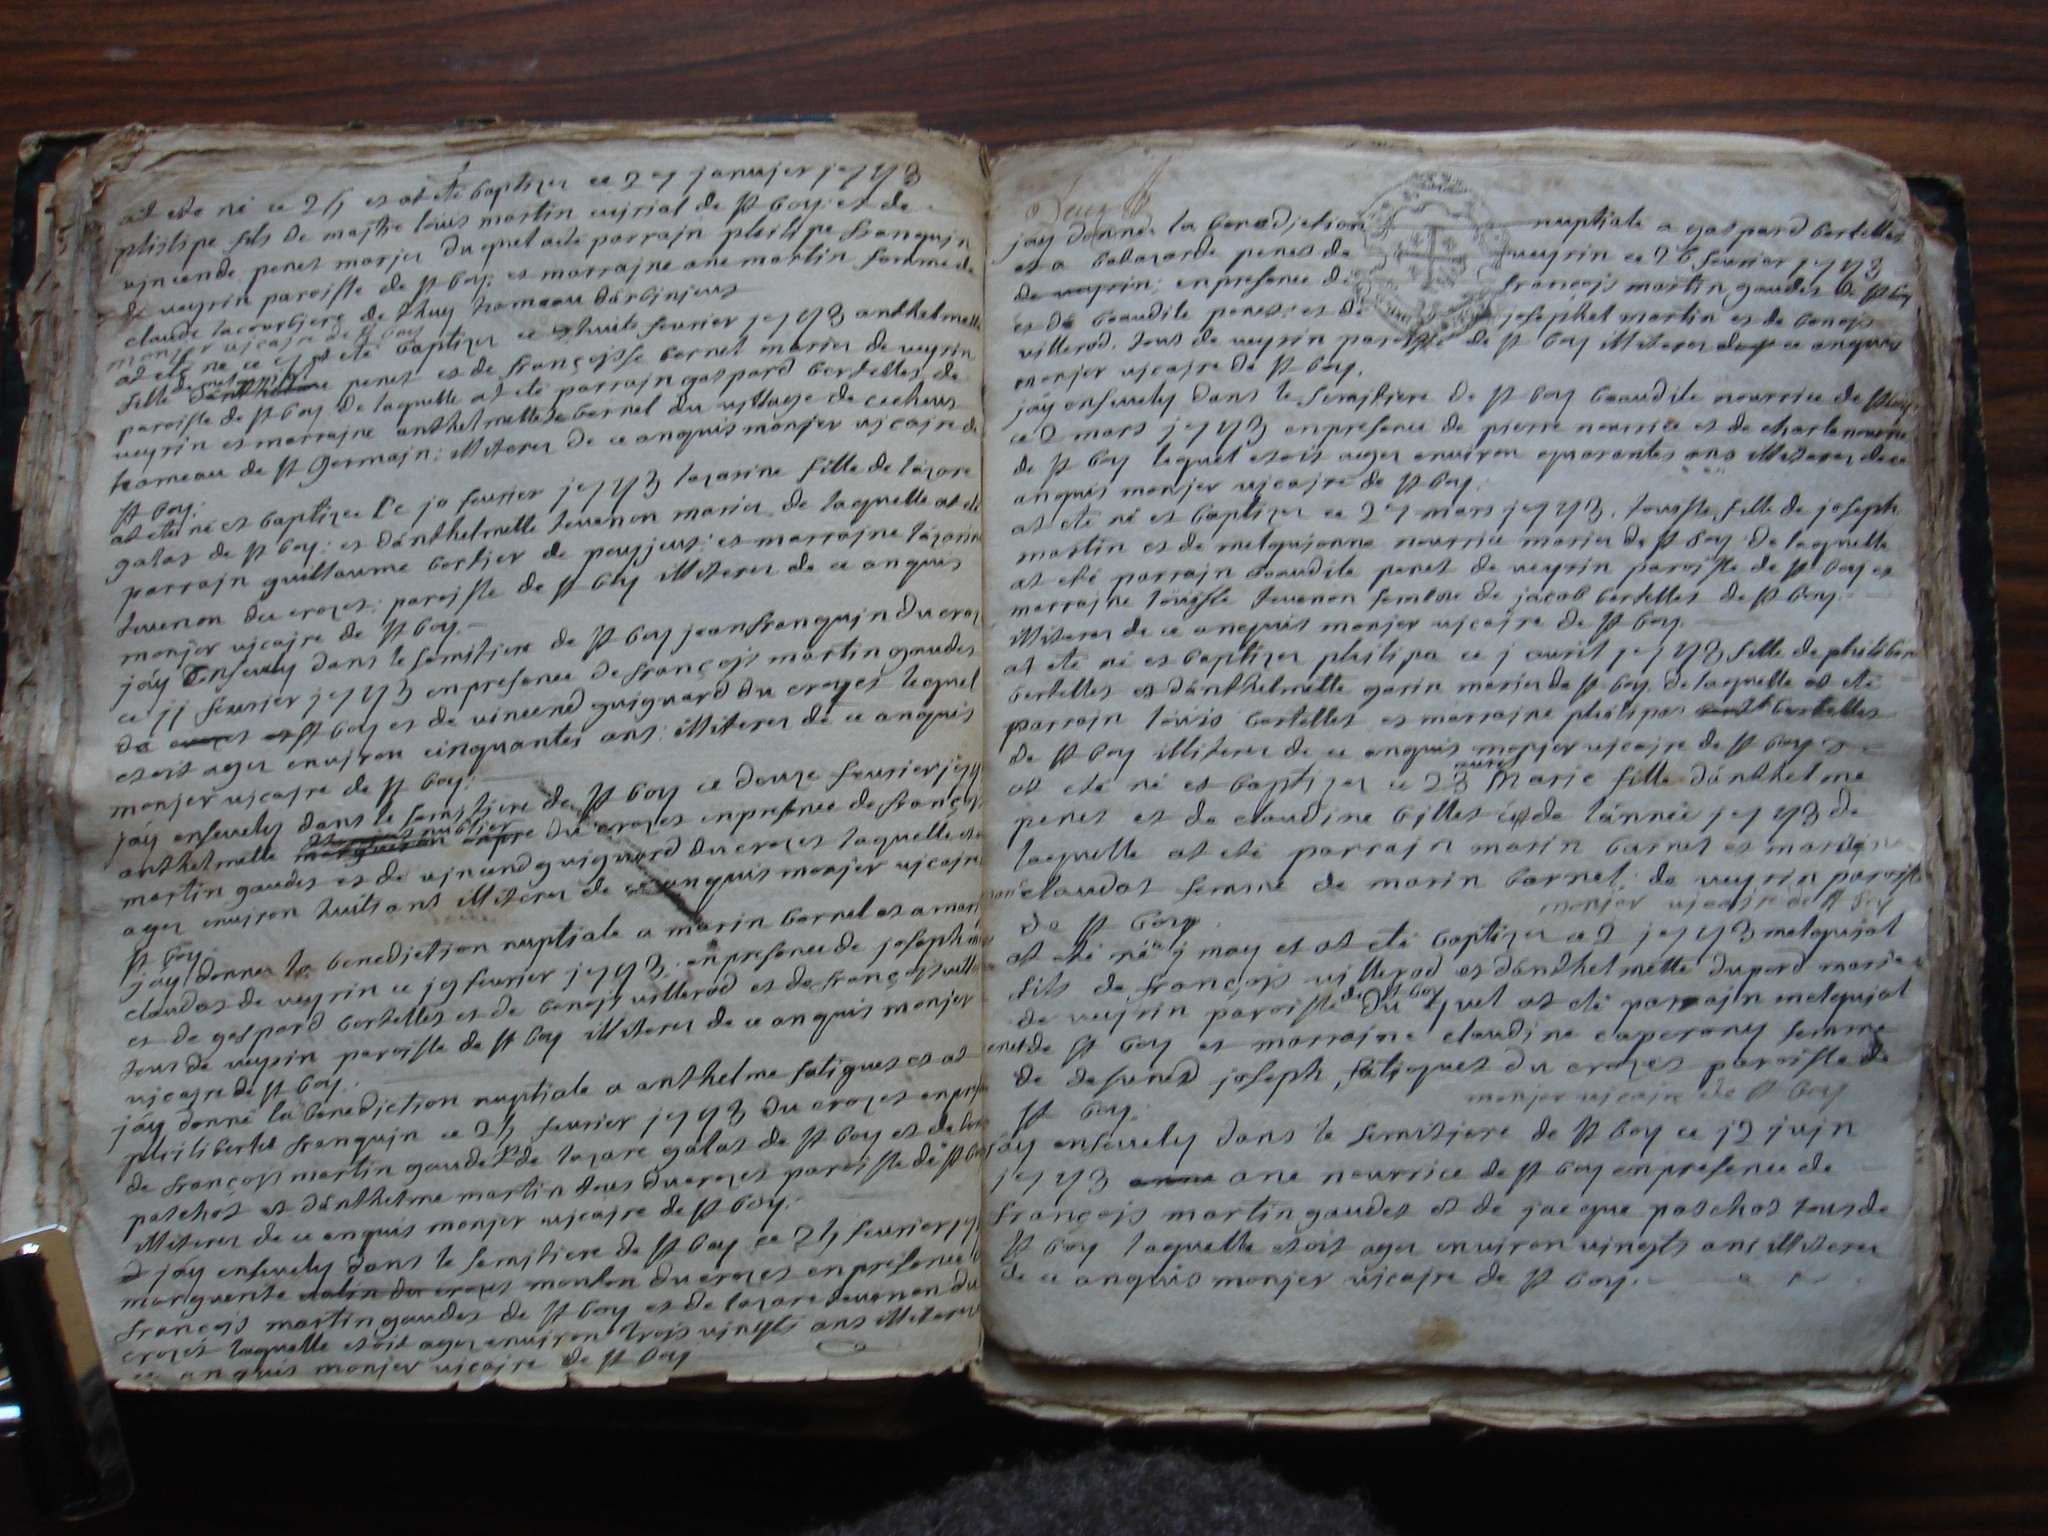 at ete né ce 25 et at eté baptizer ce 27 janvier 1743
philipe fils de majtre louis martin cuyrial de St boy: et de
vincende penet marjer du quel a eté parrajn philipe franquin
de veyrin paroisse de St boy; et marrajne ane martin femme de
claude lacourbjere de thuy hameau d'arbinjeux
monjer vjcajre de St boy
at eté né ce et at eté baptizer ce huits fevrier 1743 anthelmette
fille penet et de françoisse bernet marier de veyrin
paroisse de St boy de laquelle at eté parrajn gaspard bertelles de
veyrin et marrajne anthelmette bernet du vjllage de cecheus
hameau de St Germajn; illiterez de ce anquis monjer vjcajre de
St boy;
at eté né et baptizee le 10 fevrier 1743 lazarine fille de lazare
galas de St boy; et d'anthelmette tevenon marier de laquelle at eté
parrajn guillaume bertjer de peyzjeux; et marrajne lazarine
tevenon du crozet; parojsse de St boy illiterez de ce anquis
monjer vjcajre de St boy.
jáy ensevely dans le semitiere de St boy jean franquin du croz
ce 11 fevrier 1743 en presence de françojs martin gaudet
de St boy et de vincend guignard du crozet lequel
etoit agez environ cinquantes ans: illiterez de ce anquis
monjer vjcajre de St boy;
jáy ensevely dans le semitjere de St boy ce douze fevrier 174
anthelmette du crozet en presence de françojs
martin gaudet et de vjncend guignard du crozet laquelle eto
agez environ huits ans illiterez de ce anquis monjer vjcajre
St boy
jáy donnez la benedjction nuptjale a marin bernet et a mar
claudas de veyrin ce 19 fevrier 1743. en presence de joseph m
et de gaspard bertelles et de benojs villerod et de françojs vill
tous de veyrin parojsse de St boy illiterez de ce anquis monjer
vjcajre de St boy.
jáy donné la benediction nuptjale a anthelme fatiguet et at
philiberte franquin ce 25 fevrier 1743 du crozet en pres
de françojs martin gaudet de lazare galas de St boy et de
paschot et d'anthelme martin tous du crozet parojsse de St boy
illiterez de ce anquis monjer vjcajre de St boy.
jáy ensevely dans le semitiere de St boy ce 25 fevrier 17
marguerite monfon du crozet en presence d
françojs martin gaudet de St boy et de lazare tevenon du
crozet laquelle etoit agez environ trojs vjngts ans illiterez
ce anquis monjer vjcajre de St boy
jáy donnez la benedjction nuptiale a gaspard bertelles
et a balazarde penet de veyrin ce 26 fevrier 1743
de veyrin; en presence de françojs martin gaudet de St boy
et de beaudile penet; et de josephet martin et de benojs
villerod. tous de veyrin parojsse de St boy illiterez de ce anquis
monjer vjcajre de St boy.
jáy ensevely dans le semjtiere de St boy beaudile nourrice de St boy
ce 2 mars 1743 en presence de pierre nourrice et de charle nourrice
de St boy lequel etoit agez environ quarantes ans illiterez de ce
anquis monjer vjcajre de St boy.
at eté né et baptizer ce 27 mars 1743. louisse fille de joseph
martin et de melqujonne nourrice marier de St boy de laquelle
at eté parrajn beaudile penet de veyrin parojsse de St boy et
marrajne louisse tevenon femme de jacob bertelles de St boy.
illiterez de ce anquis monjer vjcajre de St boy.
at eté né et baptizer philipa ce 1 avril 1743 fille de philibert
bertelles et d'anthelmette garin marier de St boy de laquelle at eté
parrajn louis bertelles et marrajne philipas bertelles
de St boy illiterez de ce anquis monjer vjcajre de St boy
at eté né et baptizer ce 23 Marie fille d'anthelme
penet et de claudine billet de l'année 1743 de
laquelle at eté parrajn marin barnet et marajne
claudas femme de marin barnet; de veyrin parojsse
de St boy. monjer vjcajre de St boy
at eté né 1 may et at eté baptizer ce 2 1743 melqujol
fils de françojs villerod et d'anthelmette dupord marie
de veyrin parojsse de St boy du quel at eté parrajn melqujol
de St boy et marrajne claudine caperony femme
de defuned joseph fatioguet du crozet parojsse de
St boy; monjer vjcajre de St boy
jáy ensevely dans le semitjere de St boy ce 12 juin
1743 ane nourrice de St boy en presence de
françojs martin gaudet et de jacque paschot tous de
St boy laquelle etoit agez environ vjngts ans illiterez
de ce anquis monjer vjcajre de St boy.